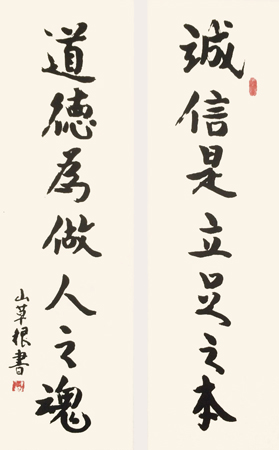 誠信是立足之本
道德為做人之魂
山草根書